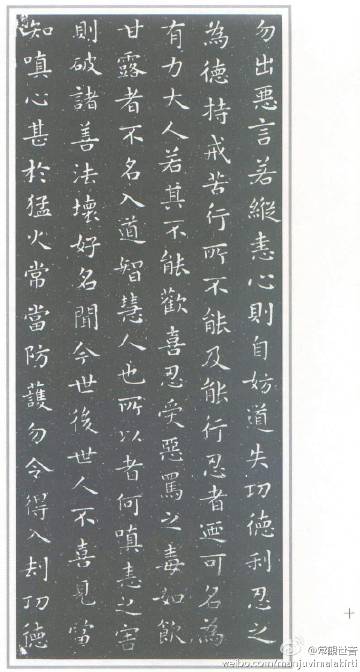 勿出悪言若縱恚心則自妨道失功德利忍之
為德持戒苦行所不能及能行忍者迺可名為
有力大人若其不能歡喜忍受惡罵之毒如飲
甘露者不名入道智慧人也所以者何嗔恚之害
則破諸善法壞好名聞今世後世人不喜見當
知嗔心甚於猛火常當防護勿令得入刦功德
@常觀世音
weibo.com/manjuvimalakirti